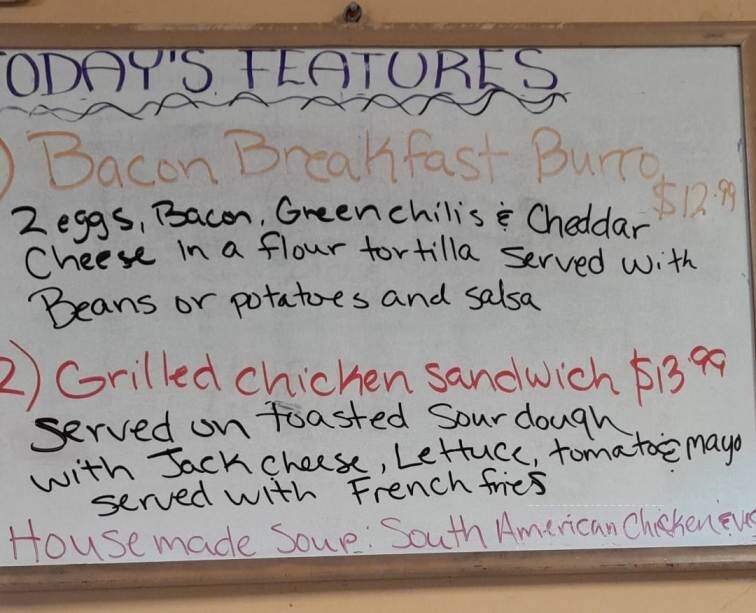 ODAY'S FEATURES
) Bacon Breakfast Burro
$12.99
2 eggs, Bacon, Green chilis & Cheddar
Cheese in a flour tortilla served with
Beans or potatoes and salsa
2) Grilled chicken sandwich $13.99
Served on toasted Sourdough
with Jack cheese, Lettuce, tomato & mayo
served with French fries
House made Soup: South American Chicken &